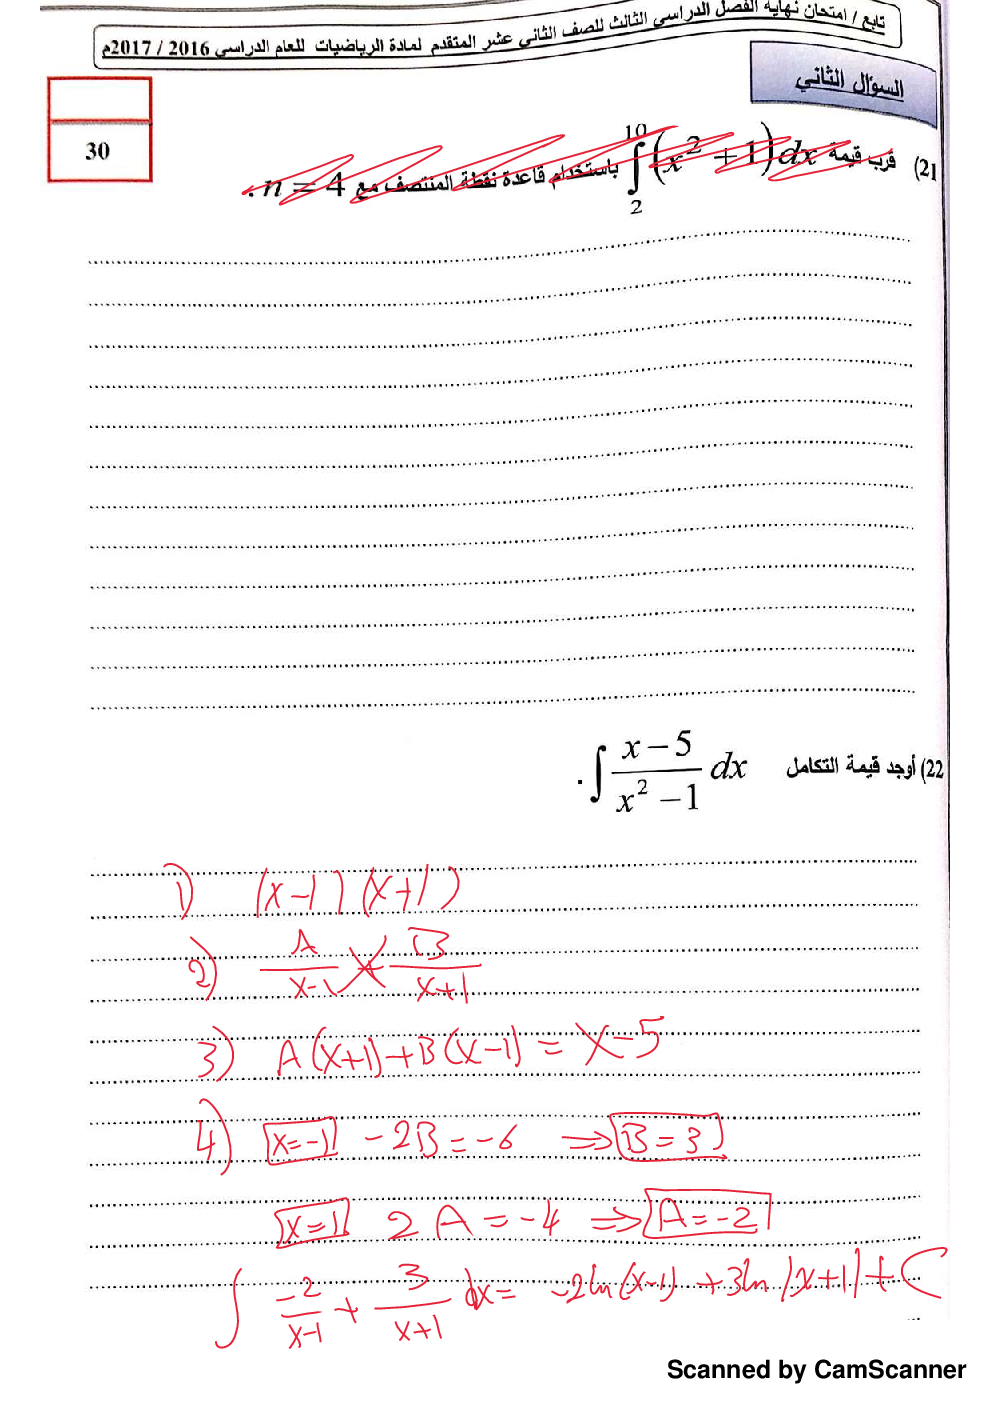 تابع / امتحان نهاية الفصل الدراسي الثالث للصف الثاني عشر المتقدم لمادة الرياضيات للعام الدراسي 2016 / 2017م
السؤال الثاني
30
21) قرب قيمة ∫₂¹⁰ (x² + 1) dx باستخدام قاعدة نقطة المنتصف مع n = 4 .
22) أوجد قيمة التكامل ∫ (x − 5)/(x² − 1) dx .
1) (x-1) (x+1)
2) A/(x-1) + B/(x+1)
3) A(x+1)+B(x-1) = x-5
4) x=-1 -2B = -6 ⇒ B = 3
x=1 2A = -4 ⇒ A = -2
∫ -2/(x-1) + 3/(x+1) dx = -2ln(x-1) + 3ln|x+1| + C
Scanned by CamScanner